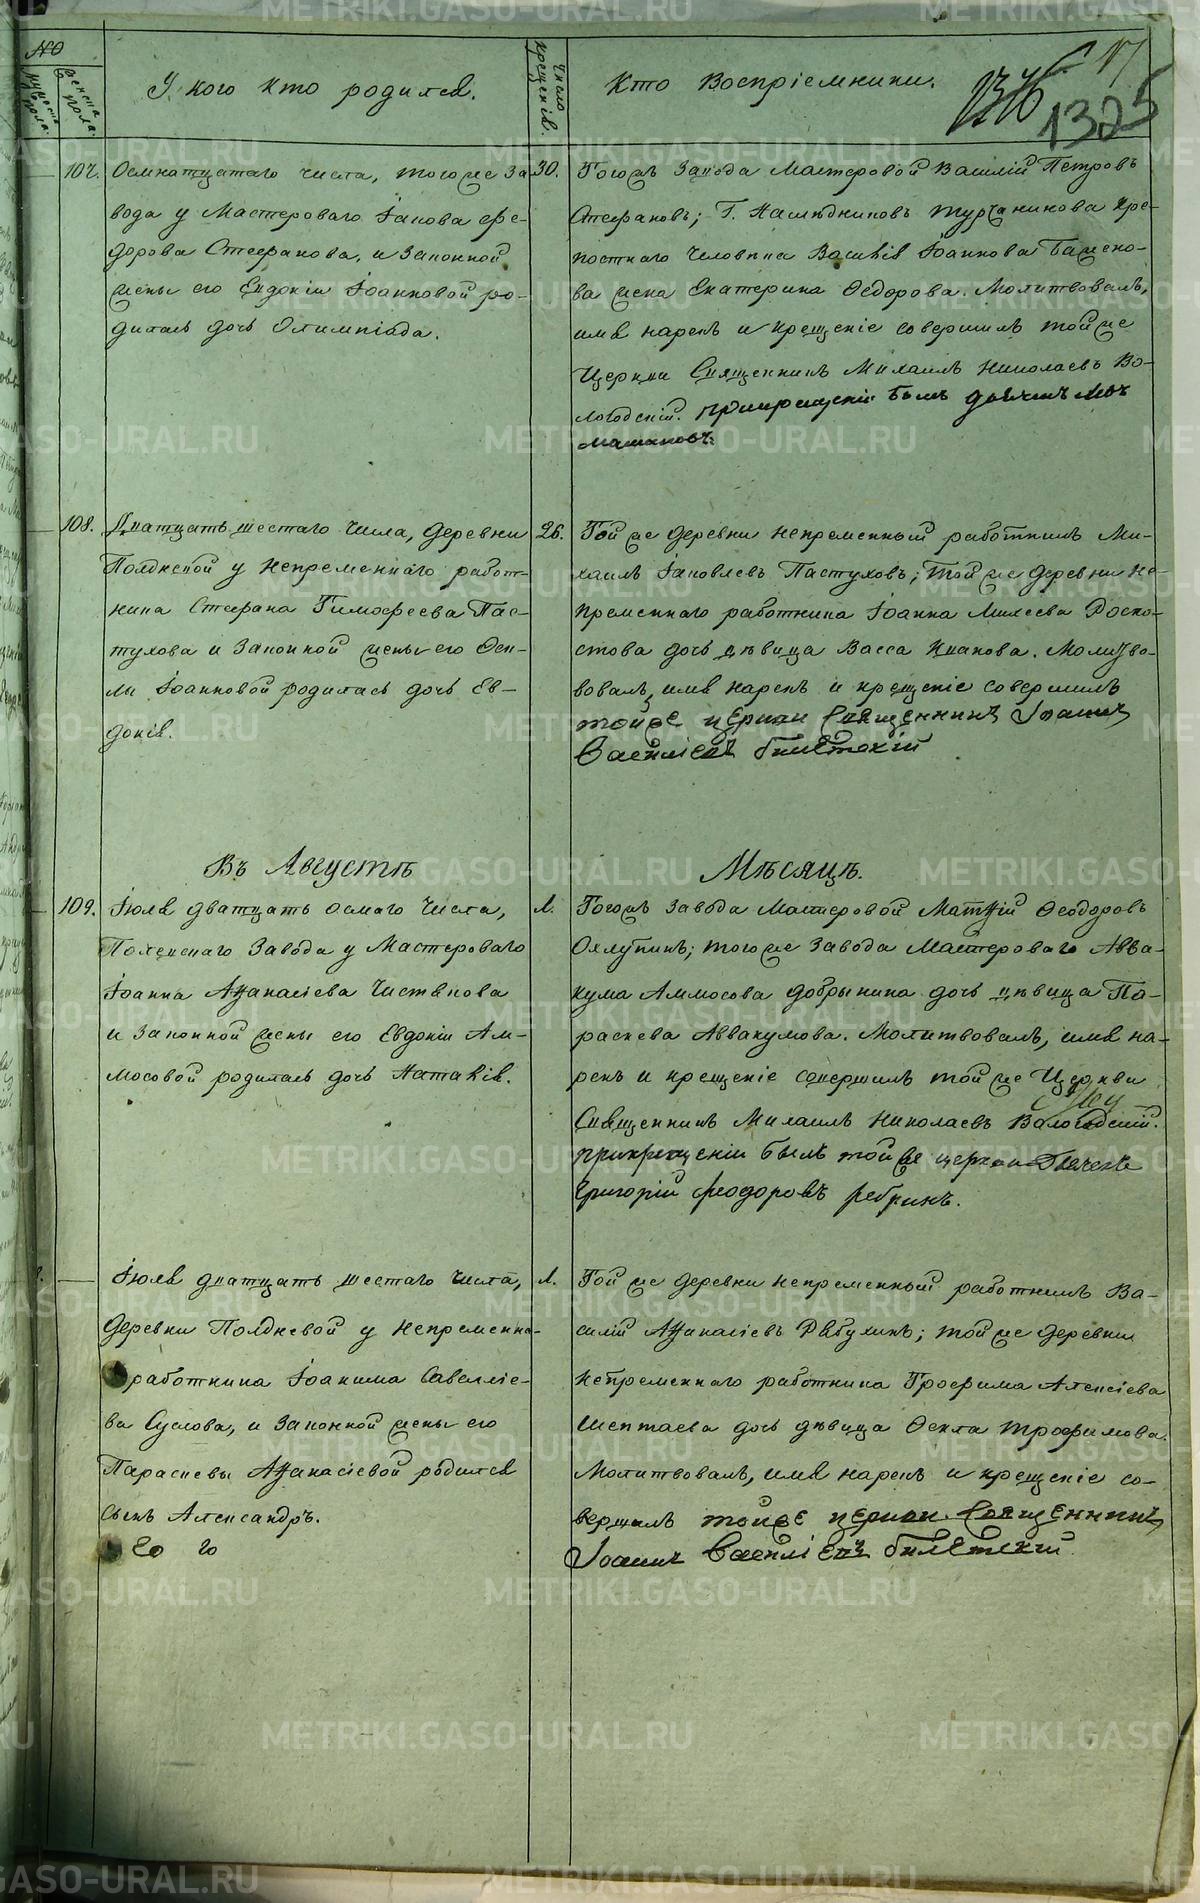 №
мужеска пола.
женска пола.
У кого кто родился.
Число крещенія.
Кто Воспріемники.
17
1376
1325
107.
Осмнатцатаго числа, тогоже За-
вода у Мастероваго Іакова Ѳе-
дорова Стефанова, и Законной
жены его Евдокіи Іоанновой ро-
дилась дочь Олимпіада.
30.
Тогожъ Завода Мастеровой Василій Петровъ
Стефановъ; Г. Наслѣдниковъ Турчанинова кре-
постнаго человѣка Василія Іоаннова Бажено-
ва жена Екатерина Ѳедорова. Молитвовалъ,
имя нарекъ и крещеніе совершилъ тойже
Церкви Священникъ Михаилъ Николаевъ Во-
логодскій. При крещеніи былъ дьячекъ
108.
Дватцать шестаго числа, деревни
Полдневой у непременнаго работ-
ника Стефана Тимофеева Пас-
тухова и Законной жены его Ѳек-
лы Іоанновой родилась дочь Ев-
докія.
26.
Той же деревни непременный работникъ Ми-
хаилъ Іаковлевъ Пастуховъ; той же деревни не-
пременнаго работника Іоанна Михеева Роско-
стова дочь дѣвица Васса Иванова. Молитво-
вовалъ, имя нарекъ и крещеніе совершилъ
тойже церкви Священникъ Іоаннъ
Василіевъ Билетскій
Въ Августѣ Мѣсяцѣ.
109.
Іюля дватцать осмаго числа,
Полевскаго Завода у Мастероваго
Іоанна Аѳанасіева Чистякова
и Законной жены его Евдокіи Ам-
мосовой родилась дочь Наталія.
1.
Тогожъ Завода Мастеровой Матѳій Ѳеодоровъ
Охлупинъ; тогоже Завода Мастероваго Авва-
кума Аммосова Добрынина дочь дѣвица Па-
раскева Аввакумова. Молитвовалъ, имя на-
рекъ и крещеніе совершилъ той же Церкви
Священникъ Михаилъ Николаевъ Вологодскій.
При крещеніи былъ тойже церкви Дьячекъ
Григорій Феодоровъ Ребринъ.
Іюля дватцать шестаго числа,
деревни Полдневой у непременна-
работника Іоакима Савеліе-
ва Суслова, и Законной жены его
Параскевы Аѳанасіевой родился
сынъ Александръ.
1.
Той же деревни непременный работникъ Ва-
силій Аѳанасіевъ Рябухинъ; той же деревни
непременнаго работника Трофима Алексіева
Шептаева дочь дѣвица Ѳекла Трофимова.
Молитвовалъ, имя нарекъ и крещеніе со-
вершилъ тойже церкви Священникъ
Іоаннъ Василіевъ Билетскій
METRIKI.GASO-URAL.RU